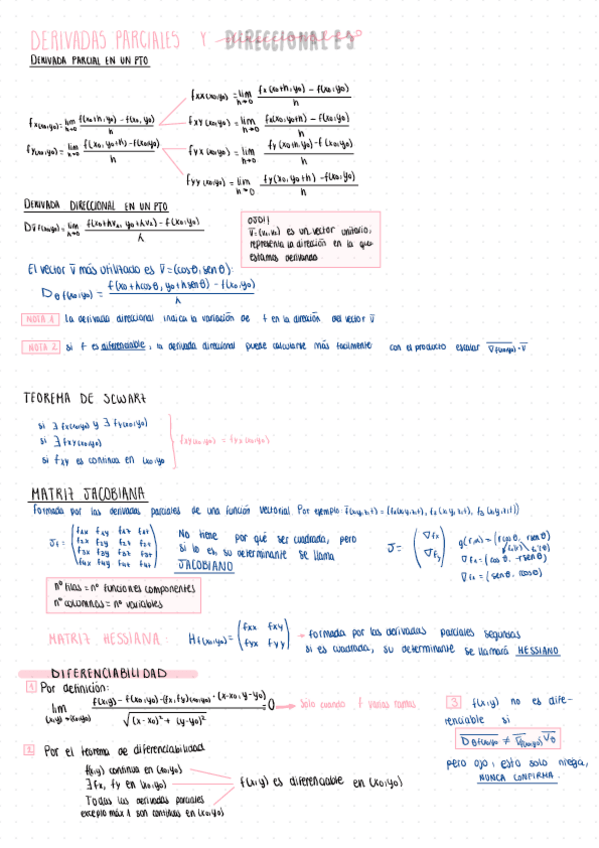 DERIVADAS PARCIALES Y DIRECCIONALES
DERIVADA PARCIAL EN UN PTO
fx(x0,y0) = lim h→0 f(x0+h,y0) - f(x0,y0) / h
fy(x0,y0) = lim h→0 f(x0,y0+h) - f(x0,y0) / h
fxx(x0,y0) = lim h→0 fx(x0+h,y0) - f(x0,y0) / h
fxy(x0,y0) = lim h→0 fx(x0,y0+h) - f(x0,y0) / h
fyx(x0,y0) = lim h→0 fy(x0+h,y0) - f(x0,y0) / h
fyy(x0,y0) = lim h→0 fy(x0,y0+h) - f(x0,y0) / h
DERIVADA DIRECCIONAL EN UN PTO
OJO!!
es un vector unitario,
representa la dirección en la que
estamos derivando
El vector v̅ más utilizado es v̅=(cosθ, senθ):
Dθ f(x0,y0) = f(x0+λcosθ, y0+λsenθ) - f(x0,y0) / λ
NOTA 1 La derivada direccional indica la variación de f en la dirección del vector v̅
NOTA 2 si f es diferenciable, la derivada direccional puede calcularse más facilmente con el producto escalar
TEOREMA DE SCWARZ
si ∃ fx(x0,y0) y ∃ fy(x0,y0)
si ∃ fxy(x0,y0)
si fxy es continua en (x0,y0
fxy(x0,y0) = fyx(x0,y0)
MATRIZ JACOBIANA
Formada por las derivadas parciales de una función vectorial. Por ejemplo
No tiene por qué ser cuadrada, pero
si lo es, su determinante se llama
JACOBIANO
nº filas = nº funciones componentes
nº columnas = nº variables
MATRIZ HESSIANA: Hf(x0,y0) = (fxx fxy fyx fyy) → formada por las derivadas parciales segundas
si es cuadrada, su determinante se llamará HESSIANO
DIFERENCIABILIDAD
1 Por definición:
lim (x,y)→(x0,y0) f(x,y) - f(x0,y0) - (fx,fy)(x0,y0)·(x-x0,y-y0) / √(x-x0)²+(y-y0)² = 0 → sólo cuando f varias ramas
2 Por el teorema de diferenciabilidad
f(x,y) continua en (x0,y0)
∃ fx, fy en (x0,y0)
Todas las derivadas parciales
excepto máx 1 son continuas en (x0,y0)
f(x,y) es diferenciable en (x0,y0)
3 f(x,y) no es dife-
renciable si
pero ojo, esto solo niega,
NUNCA CONFIRMA.